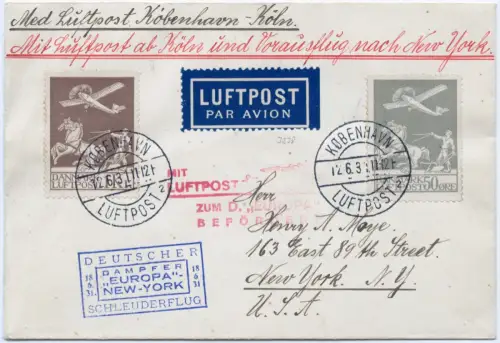 Med Luftpost København-Köln.
Mit Luftpost ab Köln und Vorausflug nach New York.
LUFTPOST
PAR AVION
KØBENHAVN
12.6.31.11-12F
LUFTPOST 2
KØBENHAVN
12.6.31.11-12F
LUFTPOST 2
LUFTPOST
50 ØRE
MIT
LUFTPOST
ZUM D. „EUROPA"
BEFÖRDERT
Herr
Henry A. Meye
163 East 89th Street.
New York. N.Y.
U.S.A.
DEUTSCHER
DAMPFER
„EUROPA"-
NEW-YORK
SCHLEUDERFLUG
18 6 31.
18 6 31